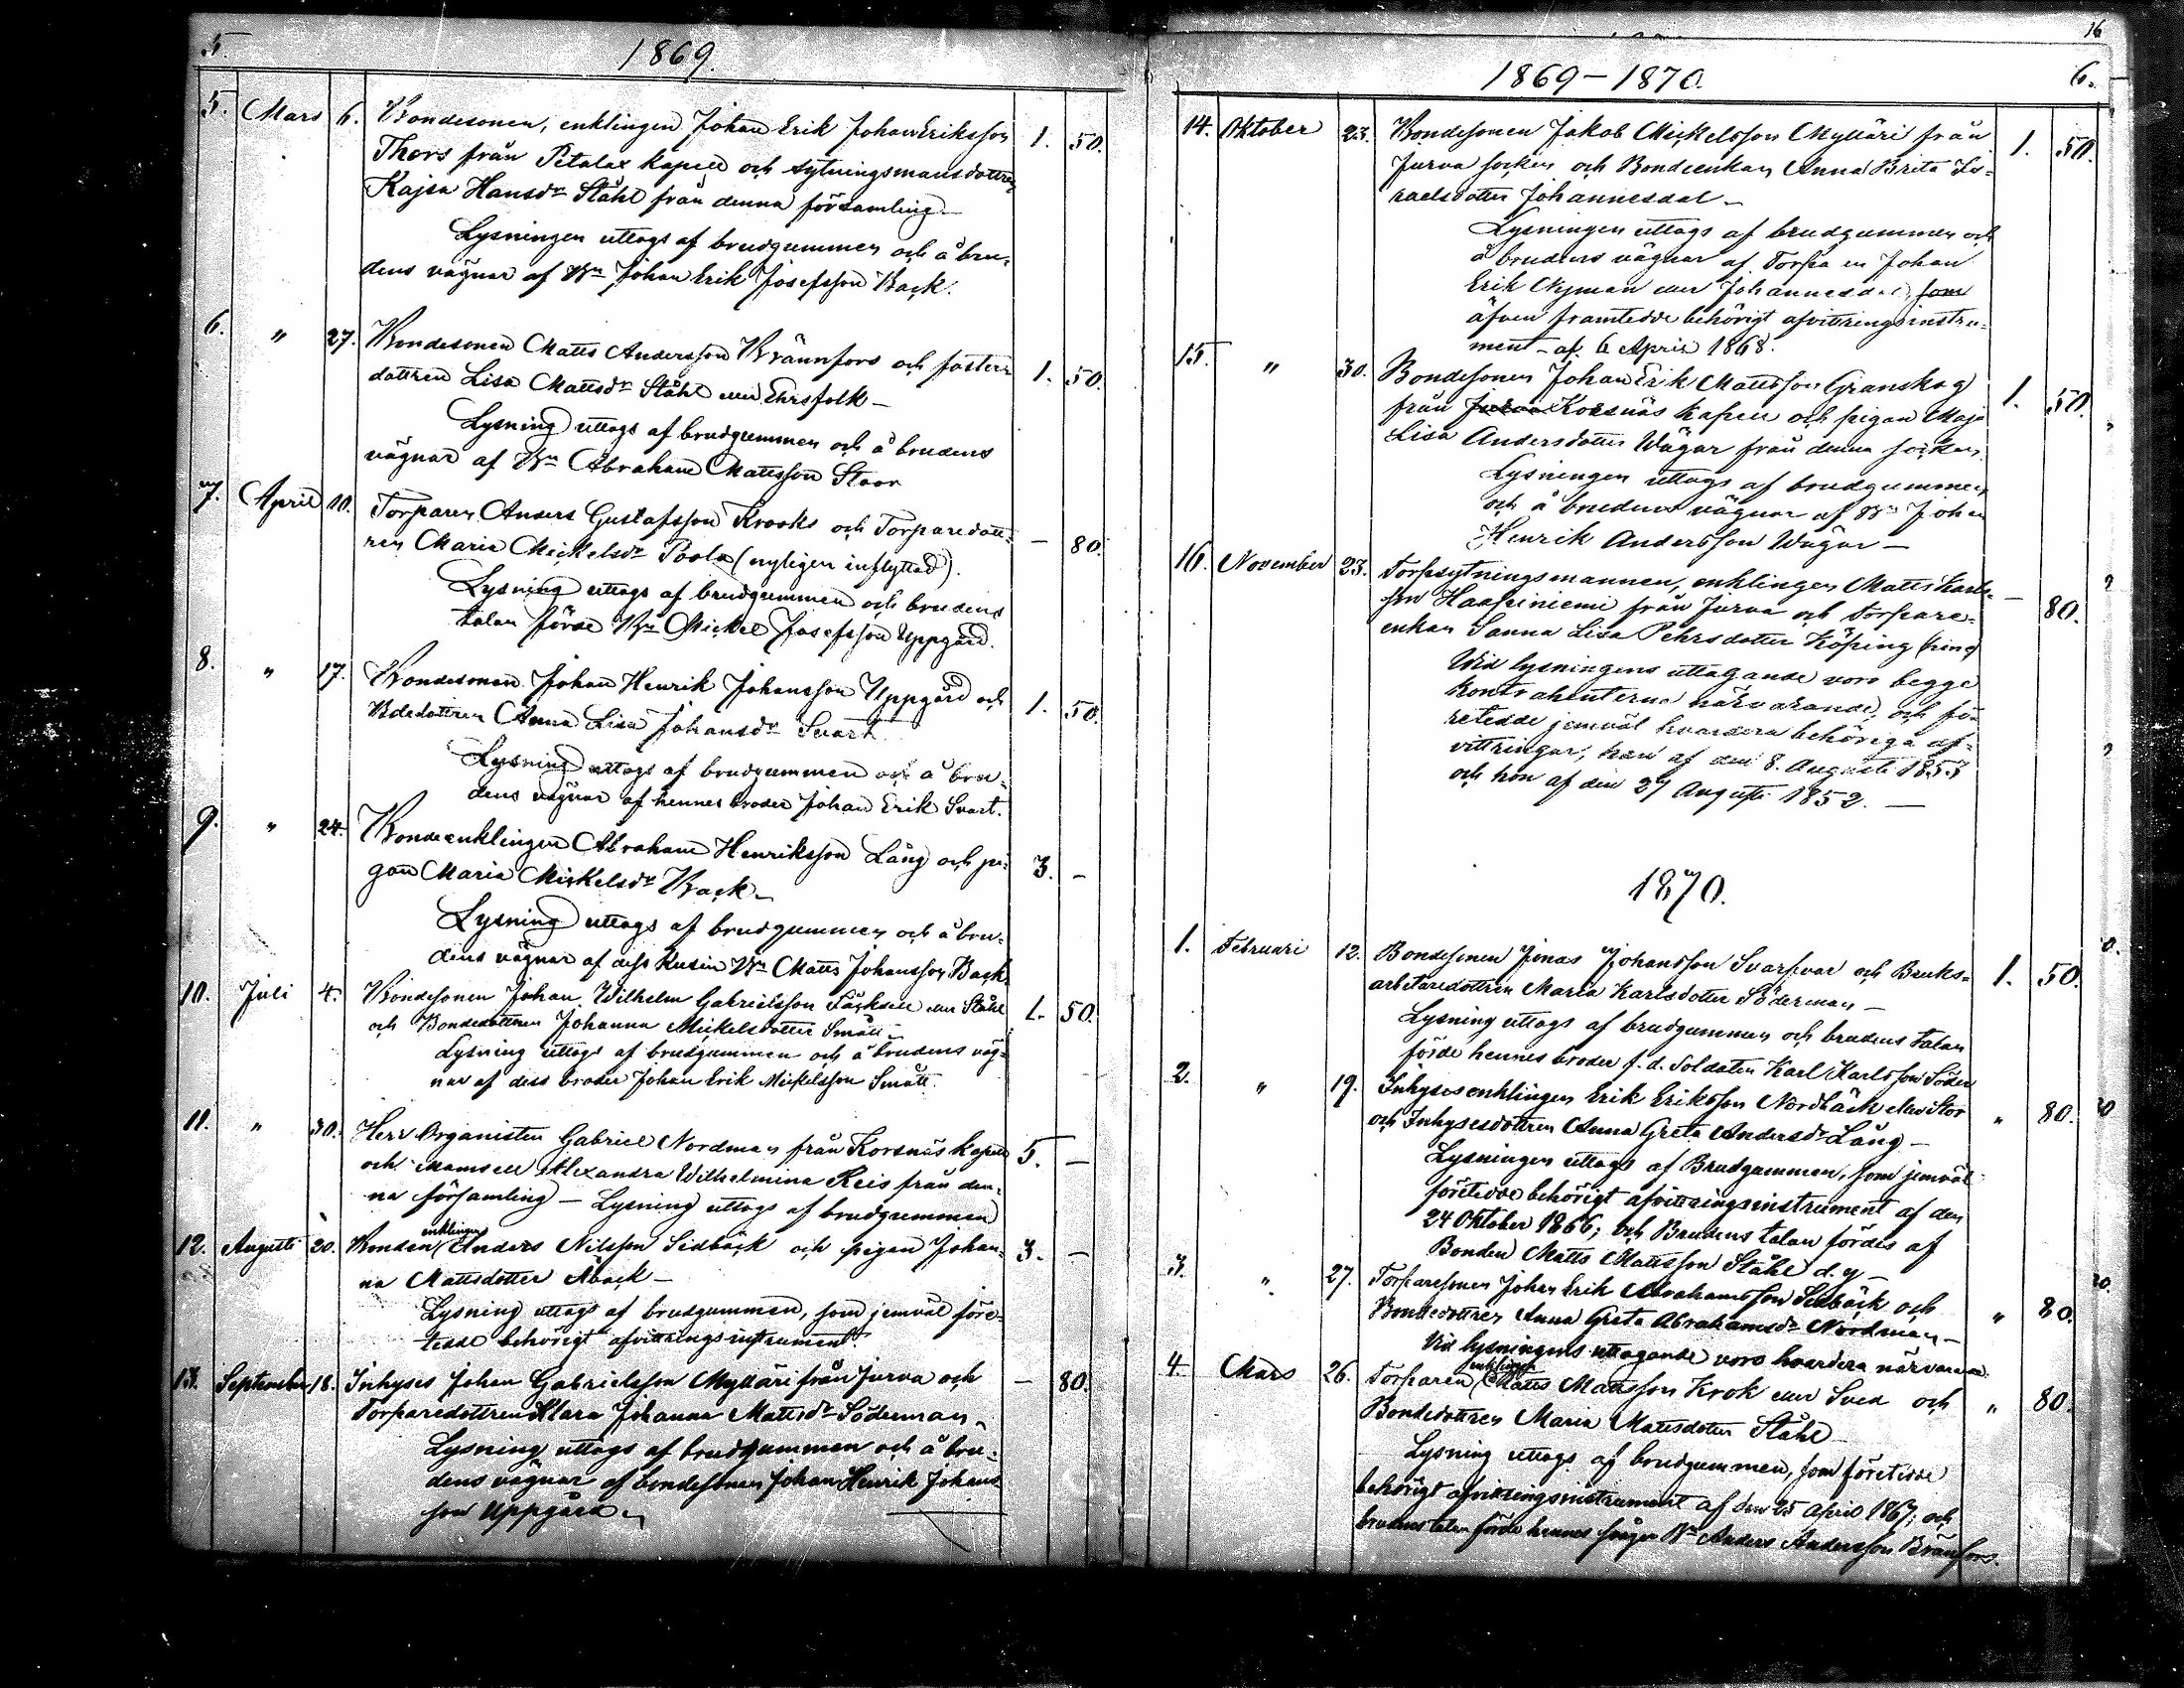 5.
1869.
5. Mars 6. Bondesonen, enklingen Johan Erik JohanEriksson 1. 50.
Thors från Petalax kapell och sytningsmansdottren
Kajsa Hansdr Ståhl från denna församling –
Lysningen uttogs af brudgummen och å bru-
dens vägnar af Bn Johan Erik Josefsson Back.
6. " 27. Bondesonen Matts Andersson Brännfors och foster- 1. 50.
dottren Lisa Mattsdr Ståhl Ehrsfolk –
Lysning uttogs af brudgummen och å brudens
vägnar af Bn Abraham Mattsson Stoor
7. April 10. Torparen Anders Gustafsson Krooks och Torparedott- – 80.
ren Maria Mickelsdr Poola (nyligen inflyttad).
Lysning uttogs af brudgummen och brudens
talan förde Bn Mickel Josefsson Uppgård.
8. " 17. Bondesonen Johan Henrik Johansson Uppgård och 1. 50.
Bdedottren Anna Lisa Johansdr Svart
Lysning uttogs af brudgummen och å bru-
dens vägnar af hennes broder Johan Erik Svart.
9. " 24. Bondeenklingen Abraham Henriksson Lång och pi- 3. –
gan Maria Mickelsdr Back –
Lysning uttogs af brudgummen och å bru-
dens vägnar af dess Kusin Bn Matts Johansson Back
10. Juli 4. Bondesonen Johan Wilhelm Gabrielsson eller Ståhl 1. 50.
och Bondedottren Johanna Mickelsdotter Smått –
Lysning uttogs af brudgummen och å brudens väg-
nar af dess broder Johan Erik Mickelsson Smått.
11. " 30. Herr Organisten Gabriel Nordman från Korsnäs kapell 5. –
och Mamsell Alexandra Wilhelmina Reis från den-
na församling – Lysning uttogs af brudgummen
12. Augusti 20. Bonden enklingen Anders Nilsson Sidbäck och pigan Johan- 3. –
na Mattsdotter Åback –
Lysning uttogs af brudgummen, som jemväl före-
tedde behörigt afvittringsinstrument.
13. September 18. Inhyses Johan Gabrielsson Mylläri från Jurva och – 80.
Torparedottren Klara Johanna Mattsdr Söderman –
Lysning uttogs af brudgummen och å bru-
dens vägnar af bondesonen Johan Henrik Johans
son Uppgård –
16
1869–1870.
6.
14. Oktober 23. Bondesonen Jakob Mickelsson Mylläri från 1. 50.
Jurva socken och Bondeenkan Anna Brita Is-
raelsdotter Johannesdal –
Lysningen uttogs af brudgummen och
å brudens vägnar af Torpa en Johan
Erik Nyman eller Johannesdal, som
äfven framtedde behörigt afvittringsinstru-
ment – af 6 April 1868.
15. " 30. Bondesonen Johan Erik Mattsson Granskog 1. 50.
från Jurva Korsnäs kapell och pigan Maja
Lisa Andersdotter Wägar från denna socken.
Lysningen uttogs af brudgummen
och å brudens vägnar af Bn Johan
Henrik Andersson Wägar –
16. November 23. Torpsytningsmannen, enklingen Matts Karls- – 80.
son Haapiniemi från Jurva och Torpare-
enkan Sanna Lisa Pehrsdotter Köping
Wid lysningens uttagande voro begge
kontrahenterna närvarande, och fö-
retedde jemväl hvardera behöriga af-
vittringar, han af den 8. Augusti 1853
och hon af den 27 Augusti 1852. –
1870.
1. Februari 12. Bondesonen Jonas Johansson Svarfvar och Bruks- 1. 50.
arbetaredottren Maria Karlsdotter Söderman –
Lysning uttogs af brudgummen och brudens talan
förde hennes broder f. d. Soldaten Karl Karlsson Söder
2. " 19. Inhysesenklingen Erik Eriksson Nordbäck eller Stor " 80.
och Inhysesdottren Anna Greta Andersdr Lång –
Lysningen uttogs af Brudgummen, som jemväl
företedde behörigt afvittringsinstrument af den
24 Oktober 1866; och Brudens talan fördes af
Bonden Matts Mattsson Ståhl d. y –
3. " 27. Torparesonen Johan Erik Abrahamsson Sidbäck och " 80.
Bondedottren Anna Greta Abrahamsdr Nordman –
Vid lysningens uttagande voro hvardera närvarande.
4. Mars 26. Torparen enklingen Matts Mattsson Krok eller Sved och " 80.
Bondedottren Maria Mattsdotter Ståhl
Lysning uttogs af brudgummen, som företedde
behörigt afvittringsinstrument af den 25 April 1867; och
brudens talan förde hennes svåger Bn Anders Andersson Bränfors.